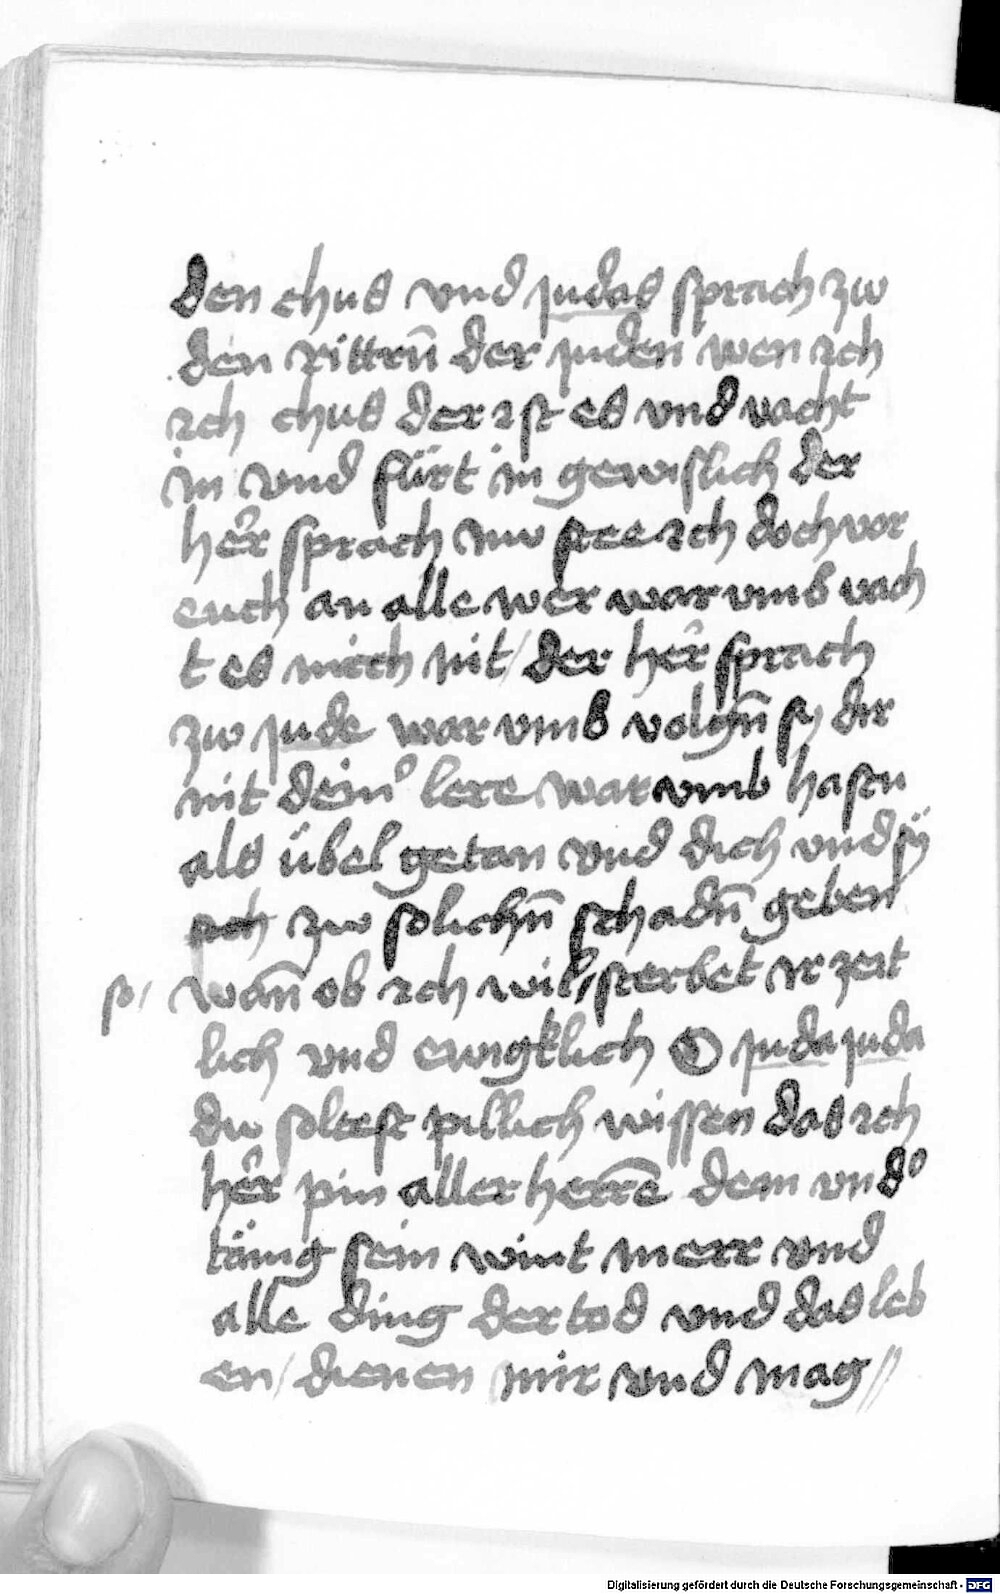 den chus vnd judas sprach zw
den rittrn̄ der juden wen ich
ich chus der ist es vnd vacht
in vnd fürt in gewislich der
her̄ sprach nw stee ich doch vor
euch an alle wer war vmb vach
t es mich nit / der her̄ sprach
zw jude war vmb volgn̄ sy dir
nit deinˀ lere war vmb hastu
als übel getan vnd dich vnd sy
ach zw solichn̄ schadn̄ geben
so / wan̄ ob ich wil / sterbet ir zeit
lich vnd ewigklich O juda juda
dw soltest pillich wissen das ich
her̄ pin aller herrē dem vndˀ
tänig sein wint merr vnd
alle ding der tod vnd das leb
en / dienen mir vnd mag //
Digitalisierung gefördert durch die Deutsche Forschungsgemeinschaft - DFG